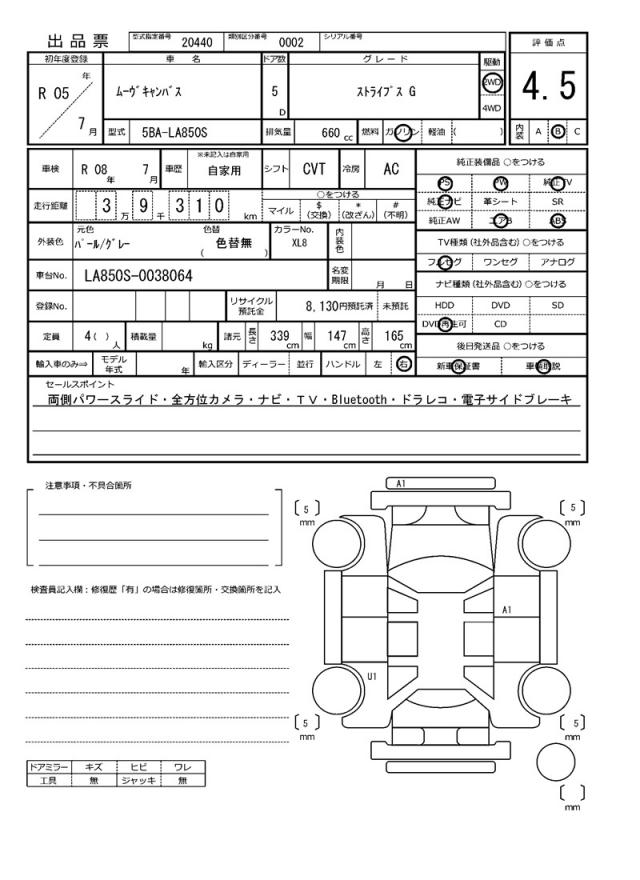 出品票
型式指定番号 20440 類別区分番号 0002 シリアル番号
初年度登録 車 名 ドア数 グレード 駆動 評価点
R 05 年 7 月 ムーヴキャンバス 5 D ストライプス G 2WD 4WD 4.5
型式 5BA-LA850S 排気量 660 cc 燃料 ガソリン 軽油 ( ) 内装 A B C
車検 R 08 年 7 月 車歴 ※未記入は自家用 自家用 シフト CVT 冷房 AC
走行距離 3 万 9 千 3 1 0 km ○をつける
マイル $(交換) *(改ざん) #(不明)
外装色 元色 パール/グレー 色替 ( 色替無 ) カラーNo. XL8 内装色
車台No. LA850S-0038064 名変期限 月 日
登録No. リサイクル預託金 8,130円預託済 未預託
定員 4( ) 人 積載量 kg 諸元 長さ 339 cm 幅 147 cm 高さ 165 cm
輸入車のみ⇒ モデル年式 年 輸入区分 ディーラー 並行 ハンドル 左 右
純正装備品 ○をつける
PS PW 純正TV
純正ナビ 革シート SR
純正AW エアB ABS
TV種類 (社外品含む) ○をつける
フルセグ ワンセグ アナログ
ナビ種類 (社外品含む) ○をつける
HDD DVD SD
DVD再生可 CD
後日発送品 ○をつける
新車保証書 車輌取説
セールスポイント
両側パワースライド・全方位カメラ・ナビ・TV・Bluetooth・ドラレコ・電子サイドブレーキ
注意事項・不具合箇所
検査員記入欄：修復歴「有」の場合は修復箇所・交換箇所を記入
A1
[ 5 ] mm
[ 5 ] mm
A1
U1
[ 5 ] mm
[ 5 ] mm
[ ] mm
ドアミラー キズ ヒビ ワレ
工具 無 ジャッキ 無